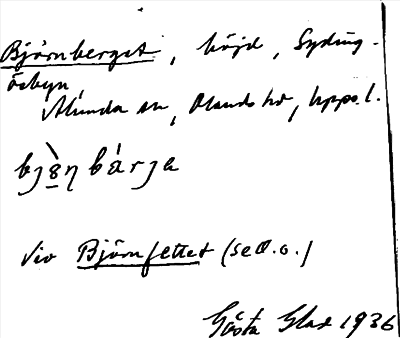 Björnberget, höjd, Syding-
östbyn,
Alunda sn, Olands hd, Upps.l.
bjö̱ɳ bárja
Viv Björnfettet (se d.o.)
Gösta Glad 1936